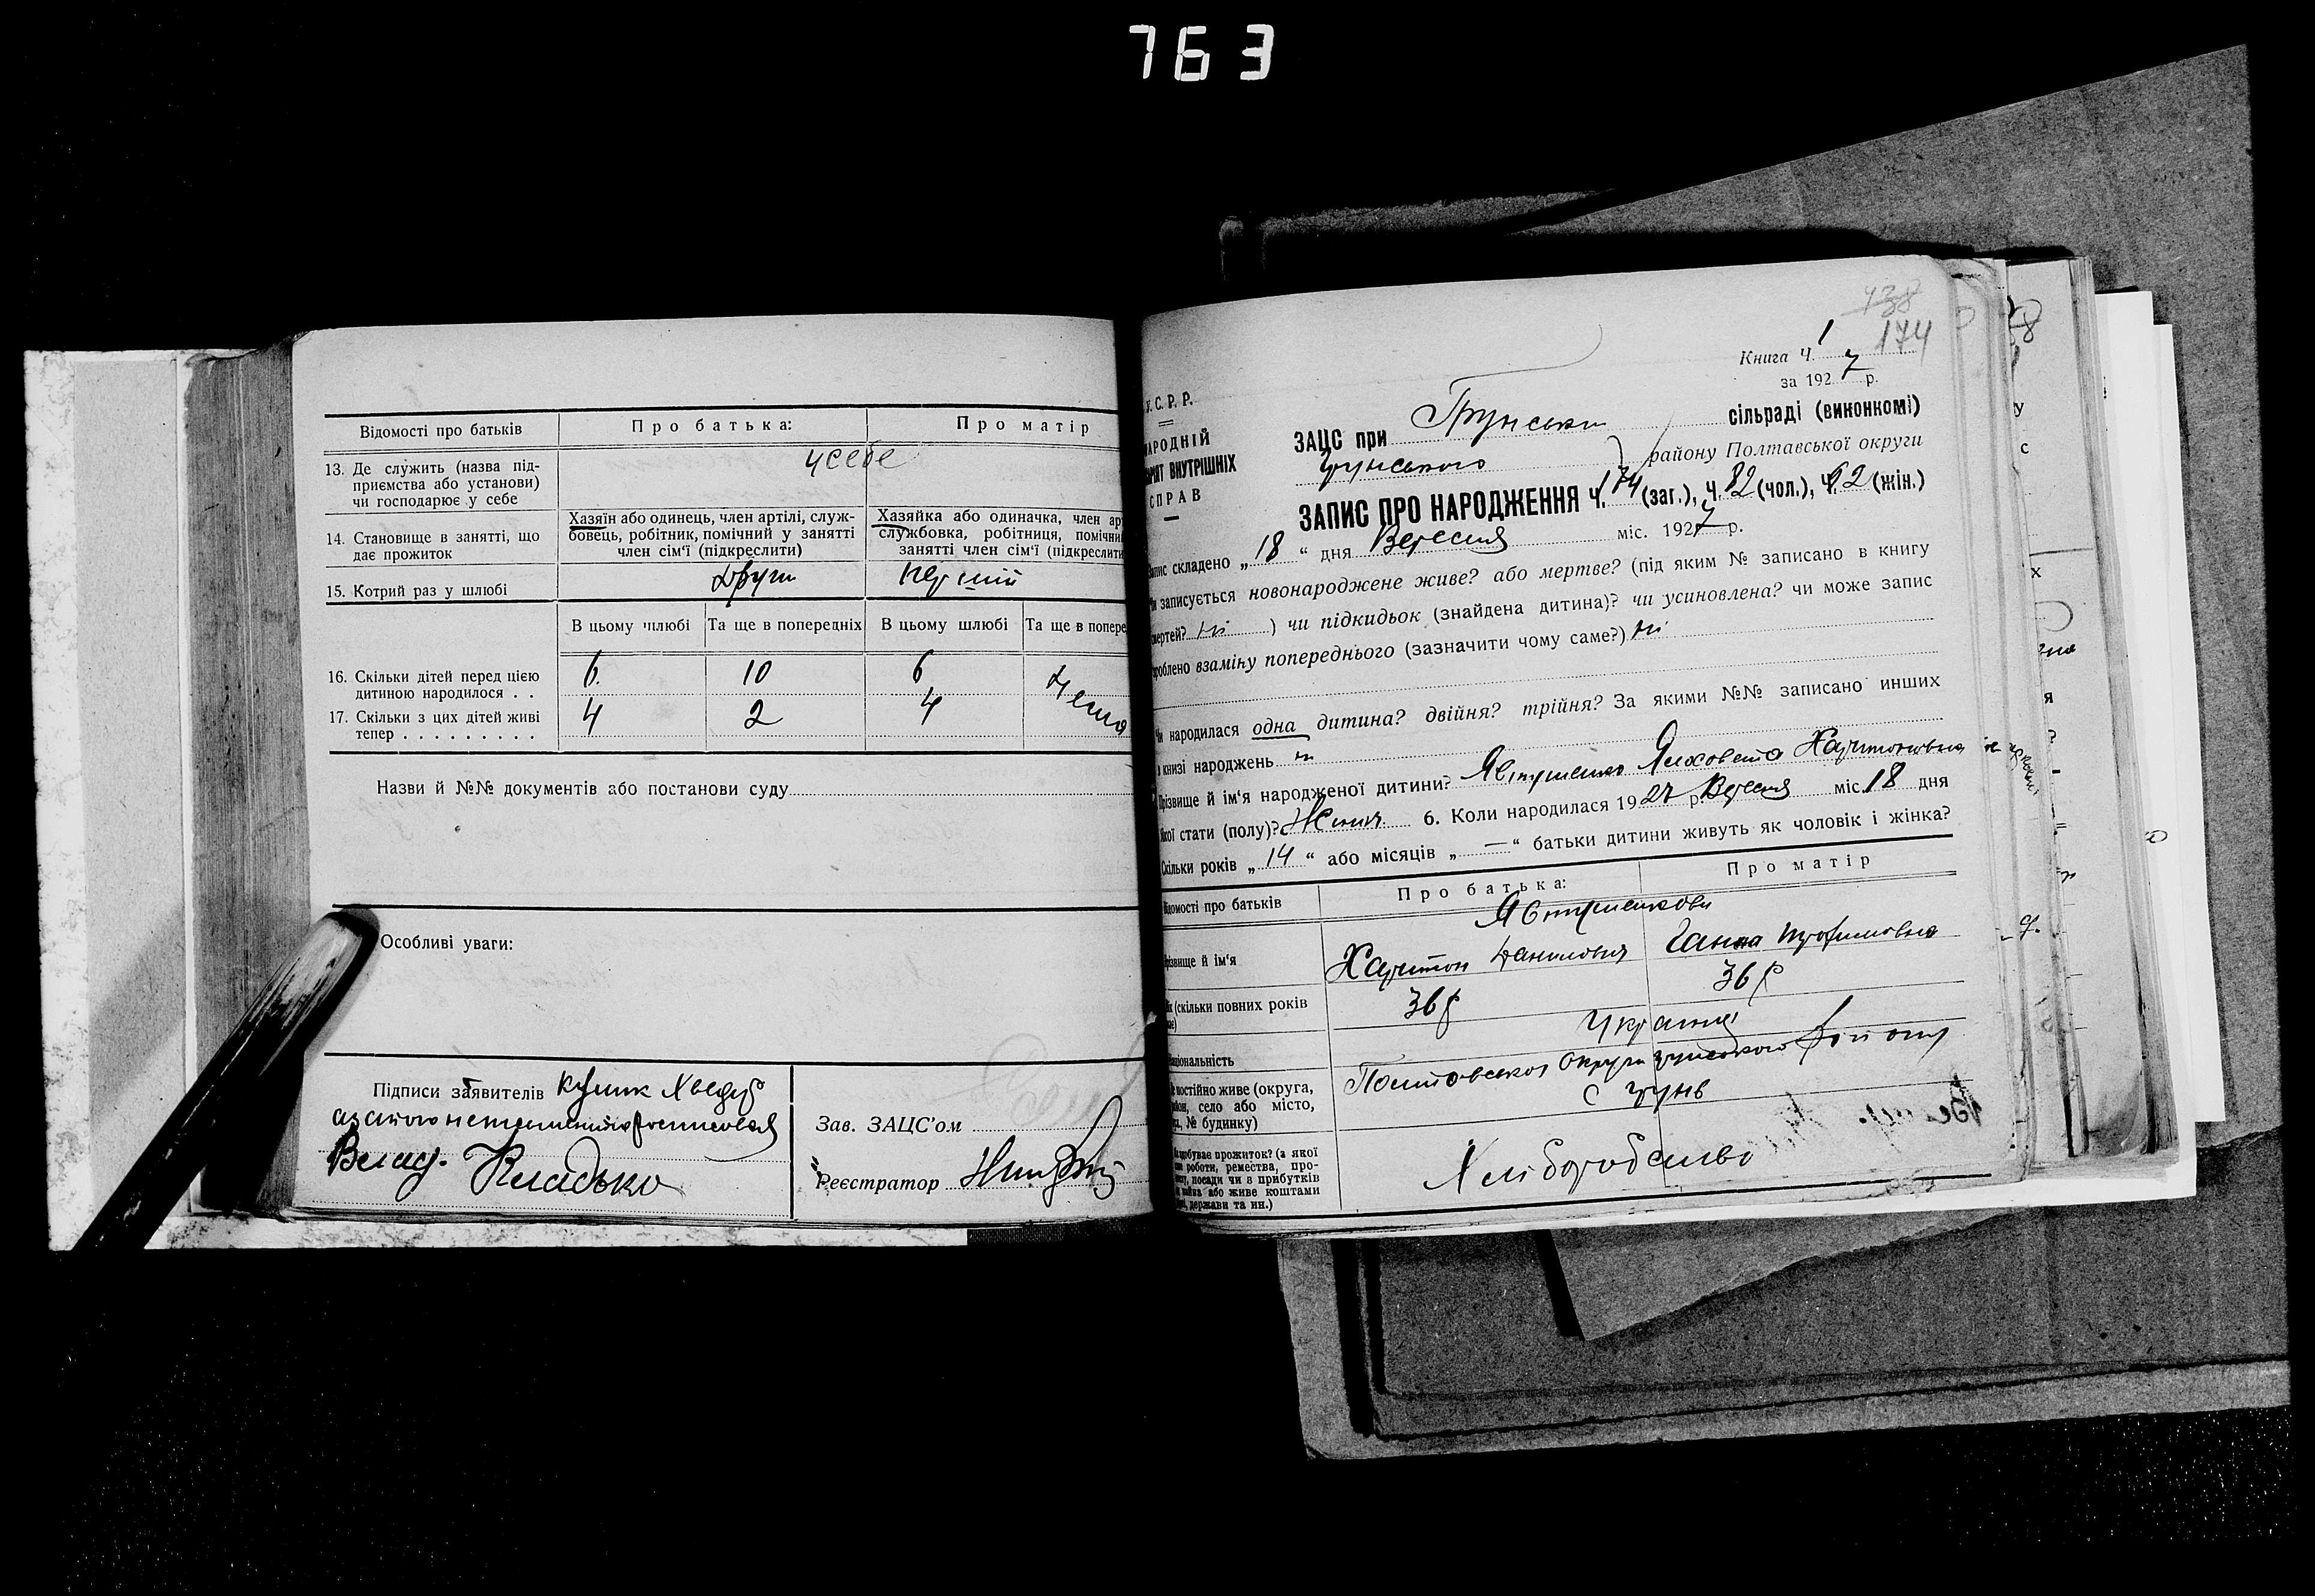 763
Відомості про батьків
Про батька:
Про матір
13. Де служить (назва під-
приємства або установи)
чи господарює у себе
усебе
14. Становище в занятті, що
дає прожиток
Хазяїн або одинець, член артілі, служ-
бовець, робітник, помічний у занятті
член сім'ї (підкреслити)
Хазяйка або одиначка, член ар
службовка, робітниця, помічни
занятті член сім'ї (підкреслити
15. Котрий раз у шлюбі
други
перший
В цьому шлюбі
Та ще в попередніх
В цьому шлюбі
Та ще в попере
16. Скільки дітей перед цією
дитиною народилося . .
6. 10 6
17. Скільки з цих дітей живі
тепер . . . . . . . . .
4 2 4
Назви й №№ документів або постанови суду
Особливі уваги:
Підписи заявителів Кулик Хведір
Зав. ЗАЦС'ом
Реєстратор
438
Книга Ч. 1 174
за 1927 р.
У. С. Р. Р.
НАРОДНІЙ
РІЯТ ВНУТРІШНІХ
СПРАВ
ЗАЦС при Грунськи сільраді (виконкомі)
Грунського району Полтавської округи
ЗАПИС ПРО НАРОДЖЕННЯ Ч. 174 (заг.), Ч. 82 (чол.), Ч. 92 (жін.)
складено „18“ дня Вересня міс. 1927 р.
записується новонароджене живе? або мертве? (під яким № записано в книгу
смертей? Ні ) чи підкидьок (знайдена дитина)? чи усиновлена? чи може запис
зроблено взаміну попереднього (зазначити чому саме?) Ні
Чи народилася одна дитина? двійня? трійня? За якими №№ записано инших
в книзі народжень
Прізвище й ім'я народженої дитини? Явтушенко Яиховета Харитоновна
якої стати (полу)? Жіноч. 6. Коли народилася 1927 р. Вересня міс. 18 дня
Скільки років „14“ або місяців „—“ батьки дитини живуть як чоловік і жінка?
Відомості про батьків
Про батька:
Про матір
Явтушенкови
Прізвище й ім'я
Харитон Данилович
Ганна Трофимовна
(скільки повних років
36 р
36 р
національність
Україна
постійно живе (округа,
район, село або місто,
№ будинку)
Полтавської Округи Грунського району
с Грунь
здобуває прожиток? (з якої
роботи, ремества, про-
посади чи в прибутків
або живе коштами
держави та ин.)
Хліборобство